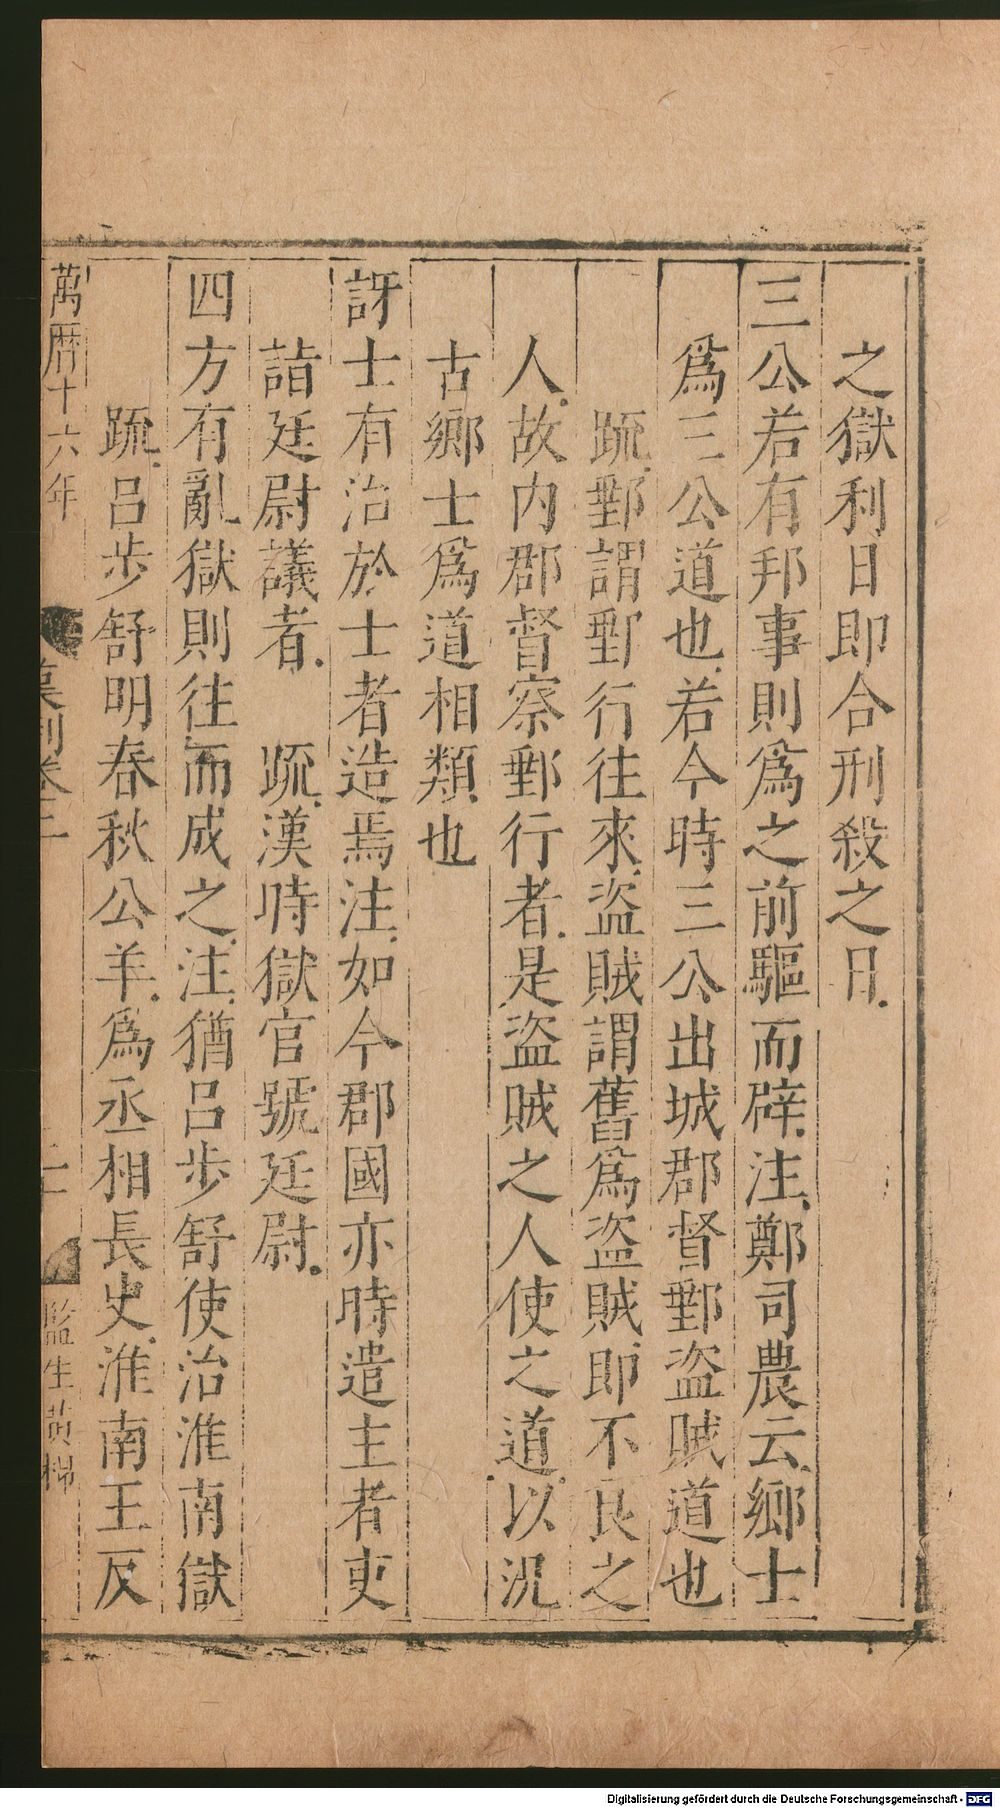 之獄利日即合刑殺之日
三公若有邦事則爲之前驅而辟注鄭司農云鄉士
爲三公道也若今時三公出城郡督郵盜賊道也
䟽郵謂郵行往來盜賊謂舊爲盜賊即不良之
人故内郡督察郵行者是盜賊之人使之道以況
古鄉士爲道相類也
訝士有治於士者造焉注如今郡國亦時遣主者吏
詣廷尉議者 䟽漢時獄官號廷尉
四方有亂獄則往而成之注猶吕步舒使治淮南獄
䟽吕步舒明春秋公羊爲丞相長史淮南王反
萬曆十六年 卷二 監生黄
Digitalisierung gefördert durch die Deutsche Forschungsgemeinschaft - DFG